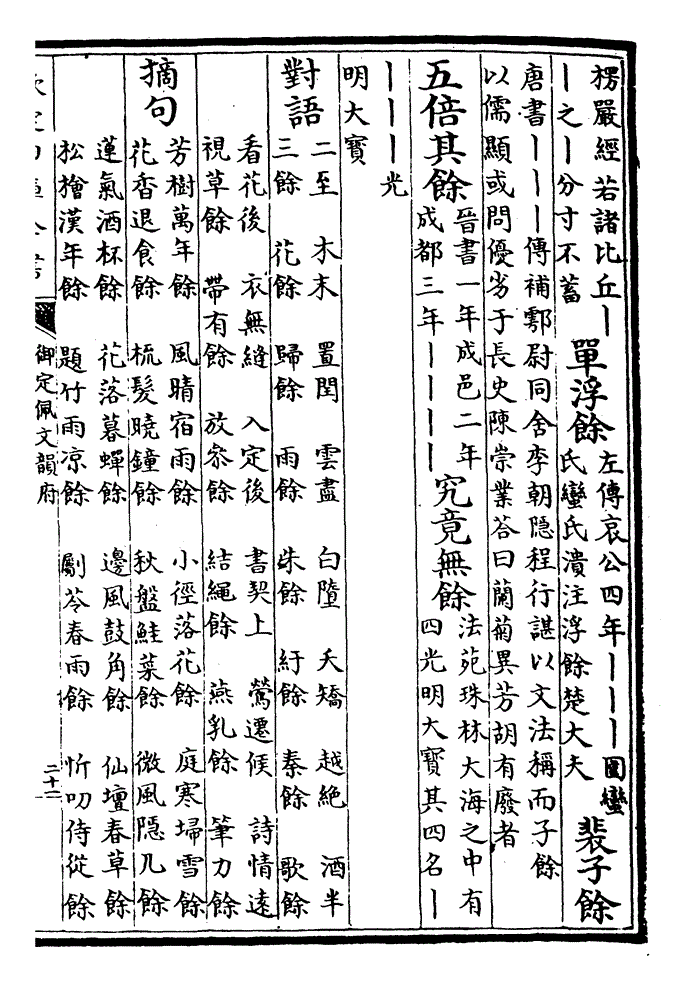 楞嚴經若諸比丘｜
｜之｜分寸不蓄
單浮餘
左傳哀公四年｜｜｜圍蠻
氏蠻氏潰注浮餘楚大夫
裴子餘
唐書｜｜｜傳補鄠尉同舍李朝隱程行諶以文法稱而子餘
以儒顯或問優劣于長史陳崇業荅曰蘭菊異芳胡有廢者
五倍其餘
晉書一年成邑二年
成都三年｜｜｜｜
究竟無餘
法苑珠林大海之中有
四光明大寳其四名｜
｜｜｜光
明大寳
對語
二至 木末 置閏 雲盡 白墮 夭矯 越絶 酒半
三餘 花餘 歸餘 雨餘 朱餘 紆餘 秦餘 歌餘
看花後 衣無縫 入定後 書契上 鶯遷候 詩情遠
視草餘 帶有餘 放叅餘 結繩餘 燕乳餘 筆力餘
摘句
芳樹萬年餘 風晴宿雨餘 小徑落花餘 庭寒埽雪餘
花香退食餘 梳髮曉鐘餘 秋盤鮭菜餘 微風隠几餘
蓮氣酒杯餘 花落暮蟬餘 邊風鼓角餘 仙壇春草餘
松檜漢年餘 題竹雨凉餘 劚苓春雨餘 忻叨侍從餘
御定佩文韻府
二十二